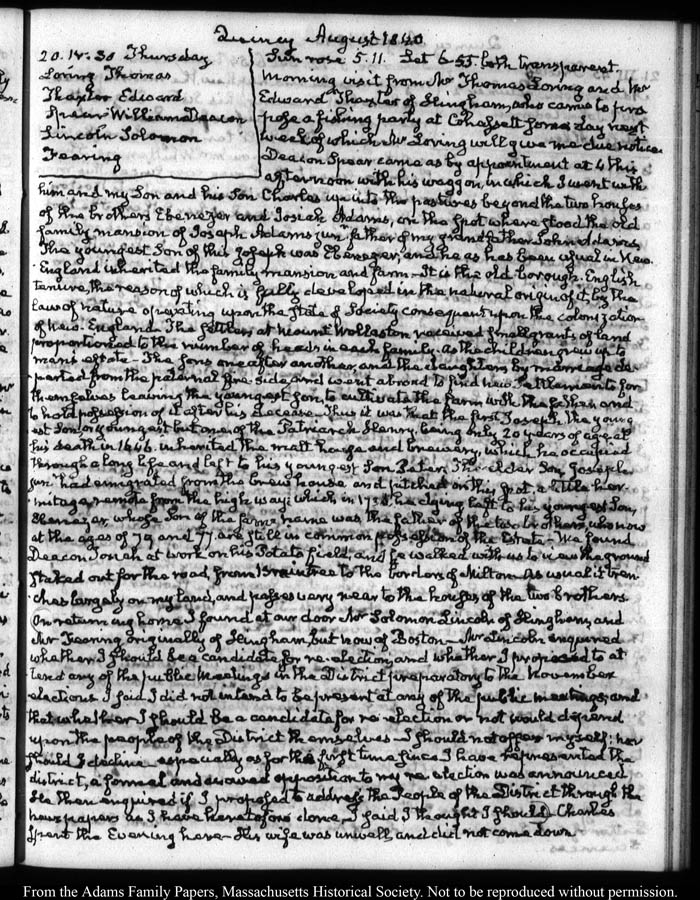 Quincy August 1840.
20. IV:30 Thursday
Loring Thomas
Thaxter Edward
Spear William Deacon
Lincoln Solomon
Fearing
Sun rose 5.11. Set 6-55 both transparent.
Morning visit from Mr Thomas Loring and Mr
Edward Thaxter of Hingham, who came to pro-
pose a fishing party at Cohassett some day next
week of which Mr Loring will give me due notice.
Deacon Spear came as by appointment at 4 this
afternoon with his waggon, in which I went with
him and my Son and his Son Charles up into the pastures beyond the two houses
of the brothers Ebenezer and Josiah Adams, on the spot where stood the old
family mansion of Joseph Adams junr father of my grandfather John Adams,
The youngest Son of this Joseph was Ebenezer, and he as has been usual in New-
England inherited the family mansion and farm— It is the old borough-English
tenure, the reason of which is fully developed in the natural origin of it, by the
Law of nature operating upon the State of Society consequent upon the colonization
of New-England. The settlers at Mount Wollaston received small grants of land
proportioned to the number of heads in each family. As the children grew up to
man's estate— The sons one after another, and the daughters by marriage de-
parted from the paternal fire-side and went abroad to find new settlements for
themselves leaving the youngest son, to cultivate the farm with the father, and
to hold possession of it after his decease— Thus it was that the first Joseph the young-
est Son or youngest but one of the Patriarch Henry, being only 20 years of age at
his death in 1646. inherited the malt house and brewery, which he occupied
through a long life and left to his youngest Son Peter. The elder Son Joseph
junr had emigrated from the brew house and pitched on this spot, a little her-
mitage remote from the high way; which in 1738, he dying left to his youngest Son,
Ebenezer, whose Son of the same name was the father of the two brothers, who now
at the ages of 79 and 77, are still in common possession of the Estate— We found
Deacon Josiah at work on his Potato field, and he walked with us to view the ground
staked out for the road, from Braintree to the borders of Milton. As usual it tren-
ches largely on my land, and passes very near to the houses of the two brothers.
On returning home I found at our door Mr Solomon Lincoln of Hingham, and
Mr Fearing originally of Hingham, but now of Boston— Mr Lincoln enquired
whether I should be a candidate for re-election, and whether I proposed to at-
tend any of the public Meetings in the District preparatory to the November
elections. I said I did not intend to be present at any of the public meetings; and
that whether I should be a candidate for re-election or not would depend
upon the people of the District themselves— I should not offer myself; nor
should I decline especially as for the first time since I have represented the
district, a formal and avowed opposition to my re-election was announced.
He then enquired if I proposed to address the People of the District through the
newspapers as I have heretofore done. I said I thought I should— Charles
spent the Evening here— His wife was unwell and did not come down.
From the Adams Family Papers, Massachusetts Historical Society. Not to be reproduced without permission.